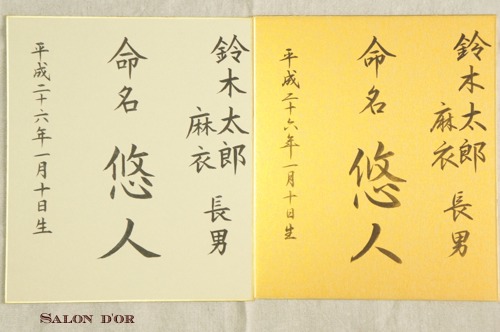 鈴木太郎
麻衣
長男
命名
悠人
平成二十六年一月十日生
鈴木太郎
麻衣
長男
命名
悠人
平成二十六年一月十日生
SALON D'OR